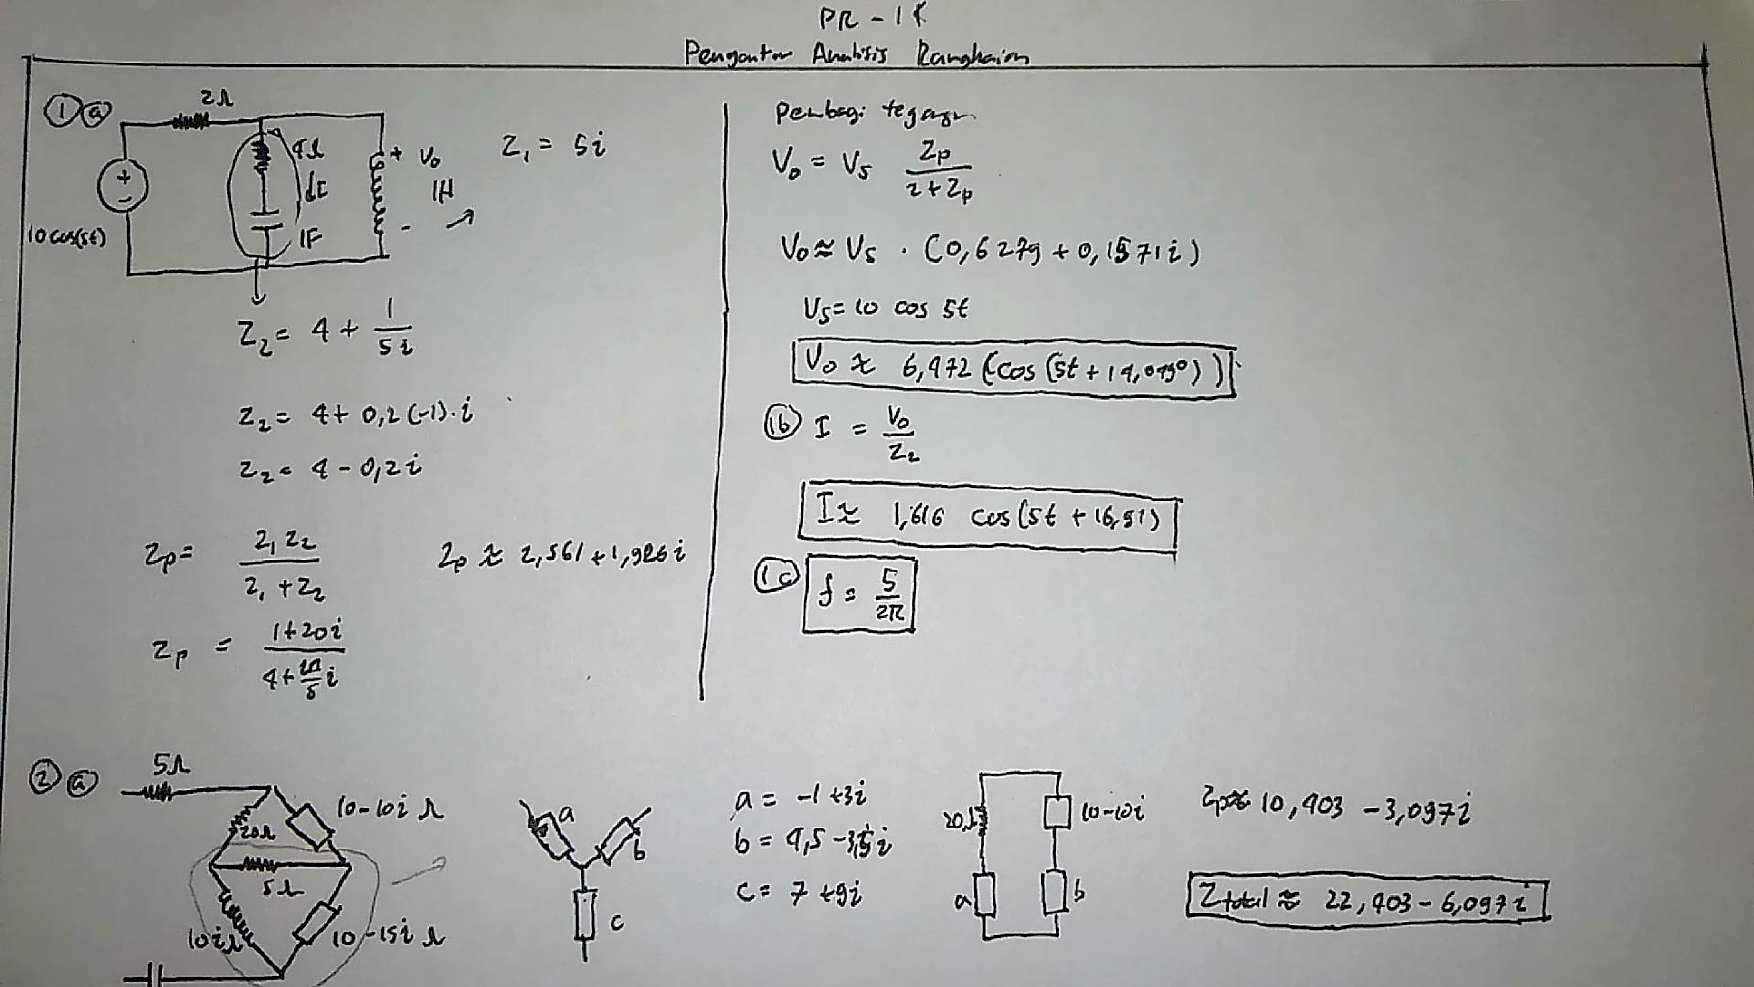 PR - 1
Pengantar Analisis Rangkaian
1 a
2Ω
4Ω
1F
10 cos(5t)
+ V₀
1H
-
Z₁ = 5i
Z₂ = 4 + 1/5i
Z₂ = 4 + 0,2 (-1) . i
Z₂ = 4 - 0,2 i
Zp = Z₁ Z₂ / Z₁ + Z₂
Zp ≈ 2,561 + 1,926 i
Zp = 1 + 20i / 4 + i
Pembagi tegangan
V₀ = Vs Zp / 2 + Zp
V₀ ≈ Vs . (0,6279 + 0,1571 i)
Vs = 10 cos 5t
V₀ ≈ 6,472 (cos (5t + 14,04°))
1b I = V₀ / Z₂
I ≈ 1,616 cos (5t + 16,91)
1c f = 5 / 2π
2 a
5Ω
20Ω
10 - 10i Ω
5Ω
10i Ω
10 - 15i Ω
a
b
c
a = -1 + 3i
b = 4,5 - 3,5 i
c = 7 + 9i
20Ω
10 - 10i
a
b
Zp ≈ 10,403 - 3,097 i
Z total ≈ 22,403 - 6,097 i